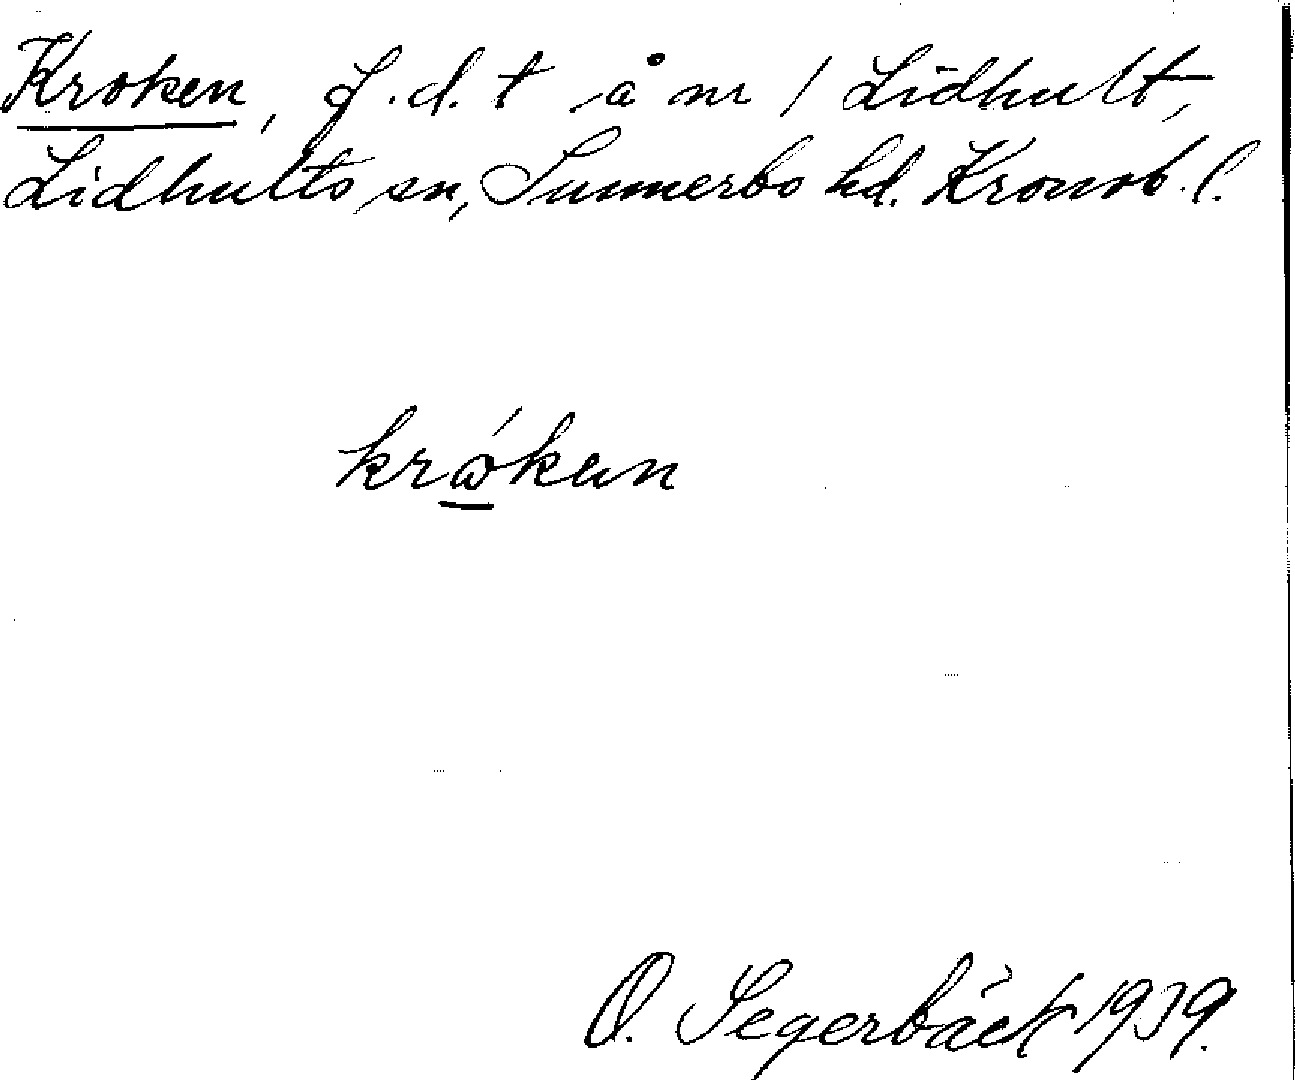 Kroken, f.d. t å nr 1 Lidhult,
Lidhults sn, Sunnerbo hd. Kronob. l.
krókun
O. Segerbäck 1939.